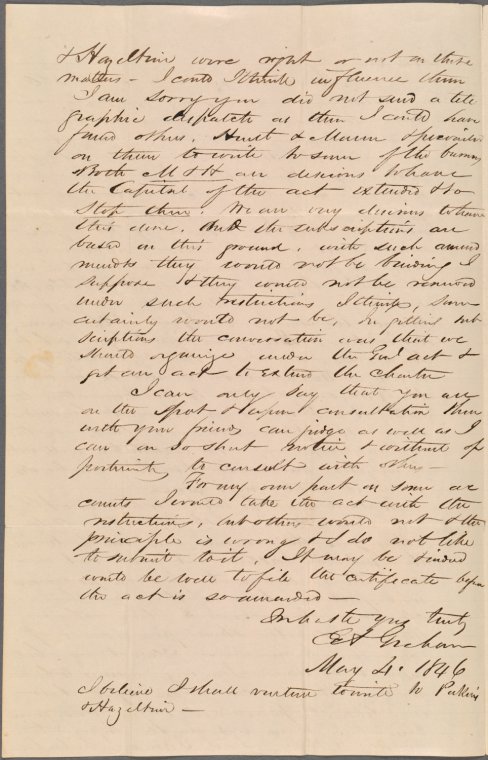 & Hazeltine were right or not on these
matters – I could I think influence them
I am sorry you did not send a tele
graphic dispatch as then I could have
found others. Hunt & Munn &
on them to write to some of the
Both M & H are desirous to have
the Capital of the act extended & to
stop there. We are very desirous to have
this done. And the subscriptions are
based on this ground, with such amend
ments they would not be binding I
suppose & they would not be renewed
under such restrictions, I think, some
certainly would not be, In getting sub
scriptions the conversation was that we
should organize under the Genl act &
get an act to extend the Charter
I can only say that you are
on the spot & upon consultation then
with your friends can judge as well as I
can on so short notice & without op
portunity to consult with others –
For my own part on some ac
counts I would take the act with the
restrictions, but others would not & the
principle is wrong & I do not like
to submit to it. It may be indeed
would be well to file the certificate before
the act is so amended –
In haste yrs truly
Graham
May 4. 1846
I believe I shall venture to write to Perkins
& Hazeltine –